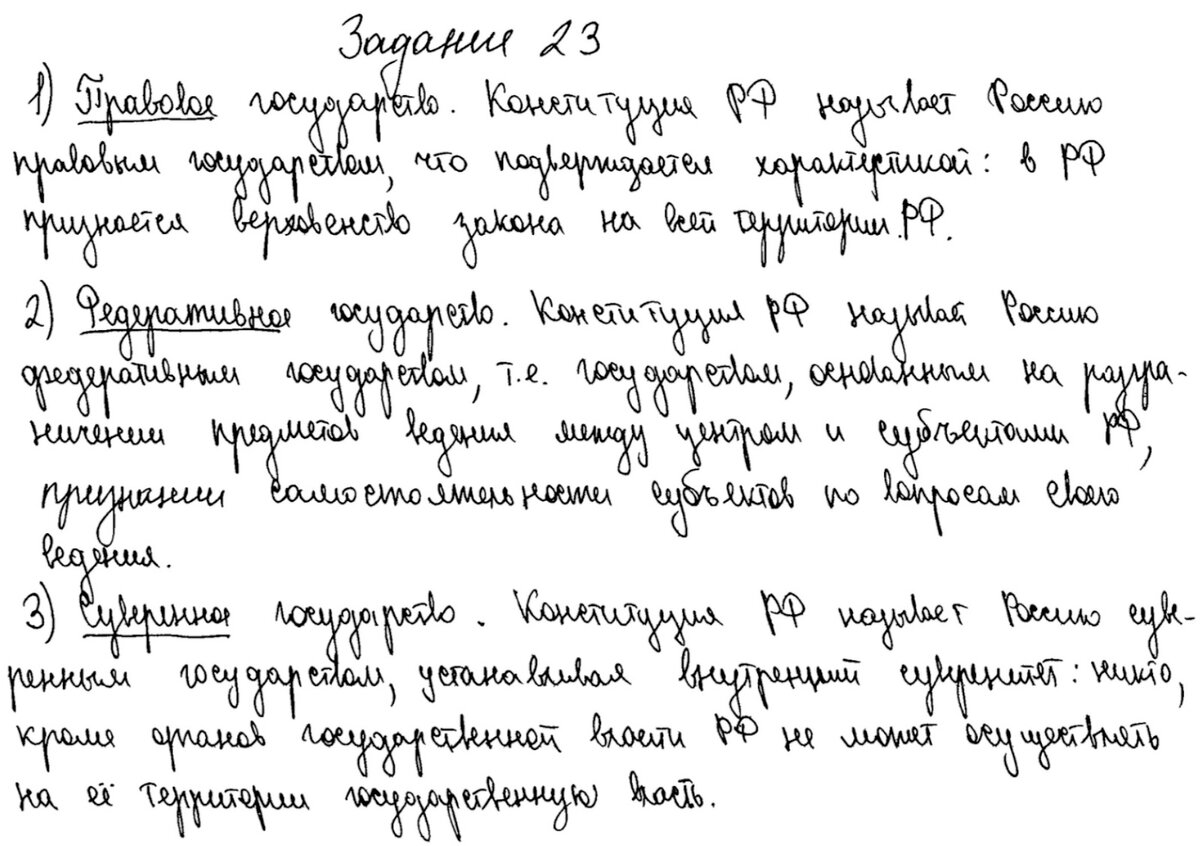 Задание 23
1) Правовое государство. Конституция РФ называет Россию
правовым государством, что подверждается характеристикой: в РФ
признается верховенство закона на всей территории РФ.
2) Федеративное государство. Конституция РФ называет Россию
федеративным государством, т.е. государством, основанным на разгра-
ничении предметов ведения между центром и субъектами РФ,
признании самостоятельности субъектов по вопросам своего
ведения.
3) Суверенное государство. Конституция РФ называет Россию суве-
ренным государством, устанавливая внутренний суверенитет: никто,
кроме органов государственной власти РФ не может осуществлять
на её территории государственную власть.